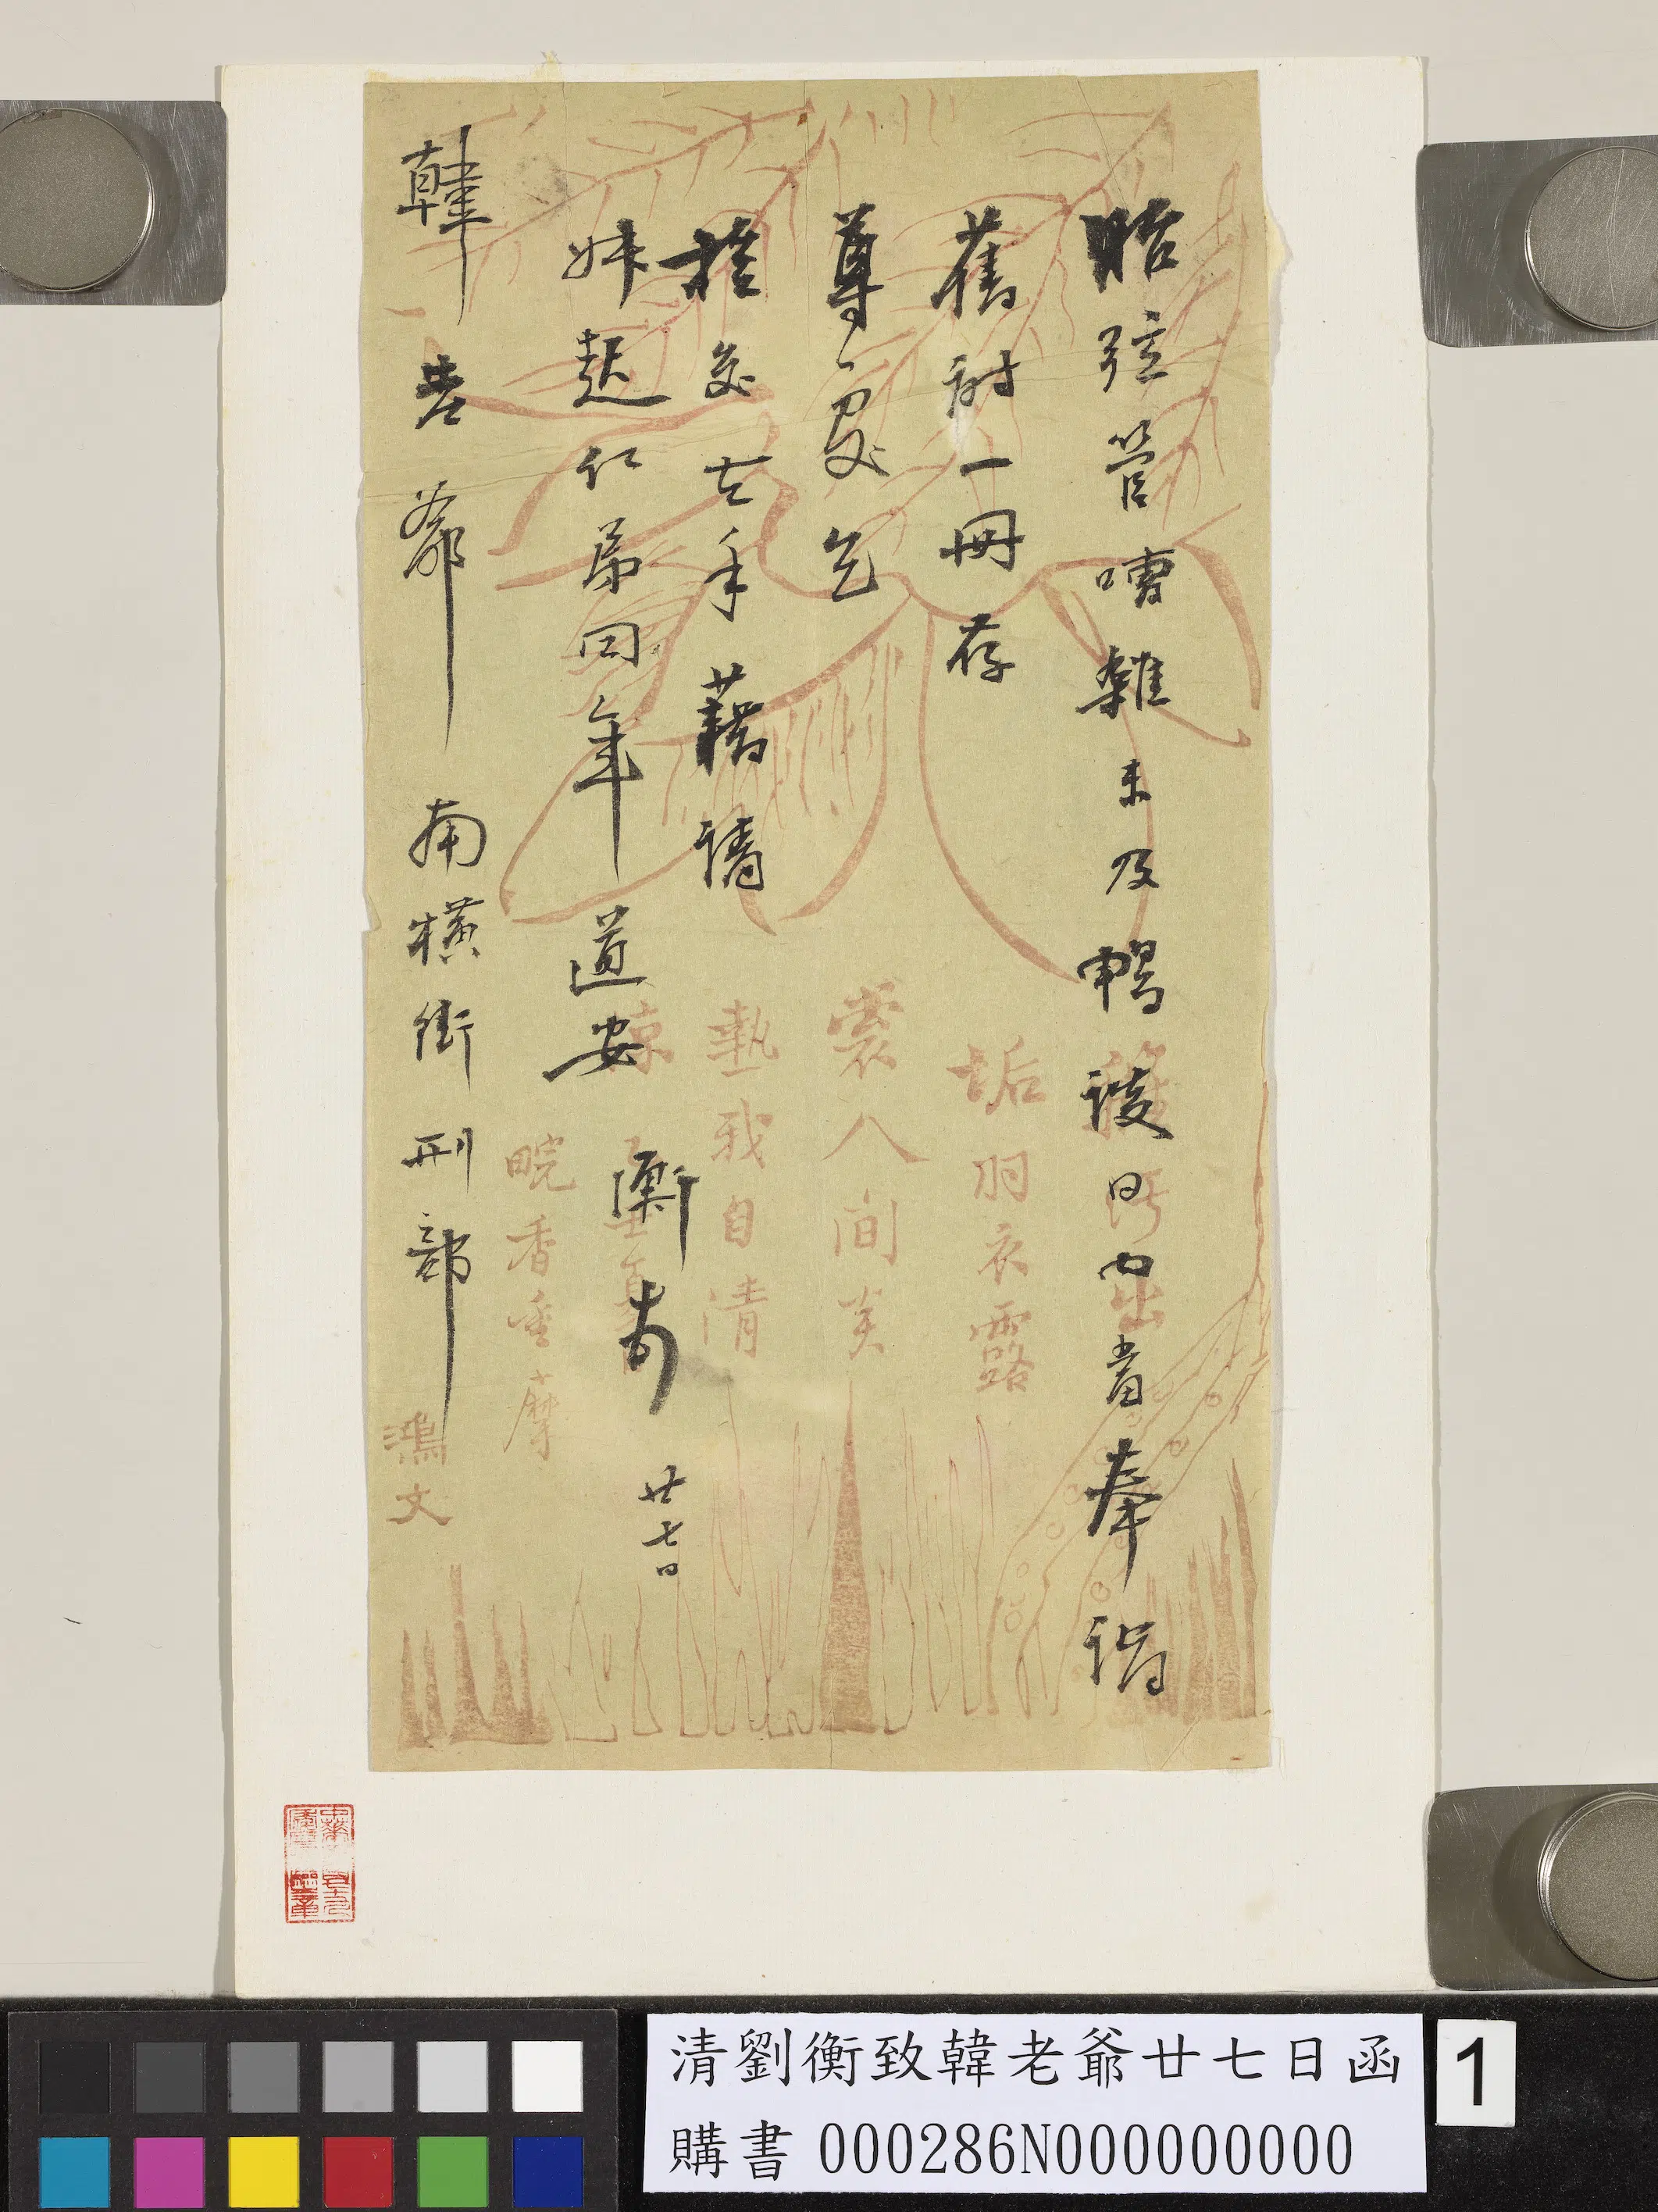 昨弦管嘈雜未及暢談日內當奉詣
舊詩一冊存
尊處乞
撿交去手藉請
妹起仁弟同年 道安 衡 頓 廿七日
韓老爺 南橫街刑部
垢羽衣露
裳人間炎
熱我自清
涼
畹香重摩
鴻文
清劉衡致韓老爺廿七日函
購書 000286N000000000
1